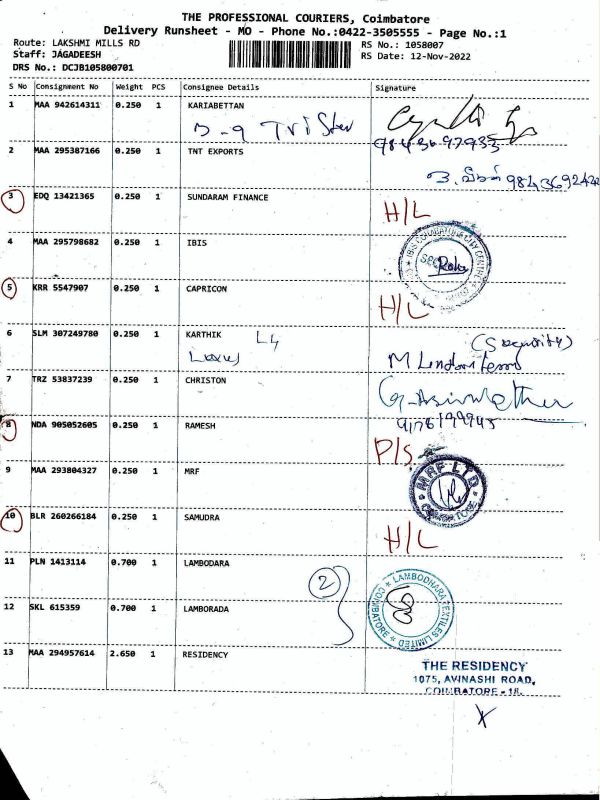 THE PROFESSIONAL COURIERS, Coimbatore
Delivery Runsheet - MO - Phone No.:0422-3505555 - Page No.:1
Route: LAKSHMI MILLS RD
Staff: JAGADEESH
DRS No.: DCJB105800701
RS No.: 1058007
RS Date: 12-Nov-2022
S No Consignment No Weight PCS Consignee Details Signature
1 MAA 942614311 0.250 1 KARIABETTAN
D-9 Tristar
9843697933
2 MAA 295387166 0.250 1 TNT EXPORTS
3 EDQ 13421365 0.250 1 SUNDARAM FINANCE H/L
4 MAA 295798682 0.250 1 IBIS
5 KRR 5547907 0.250 1 CAPRICON H/L
6 SLM 307249780 0.250 1 KARTHIK L4
(Security)
7 TRZ 53837239 0.250 1 CHRISTON
8 NDA 905052605 0.250 1 RAMESH P/S
9 MAA 293804327 0.250 1 MRF
MRF LTD
10 BLR 260266184 0.250 1 SAMUDRA H/L
11 PLN 1413114 0.700 1 LAMBODARA
2
LAMBODHARA TEXTILES LIMITED
COIMBATORE
12 SKL 615359 0.700 1 LAMBORADA
13 MAA 294957614 2.650 1 RESIDENCY
THE RESIDENCY
1075, AVINASHI ROAD,
COIMBATORE - 18.